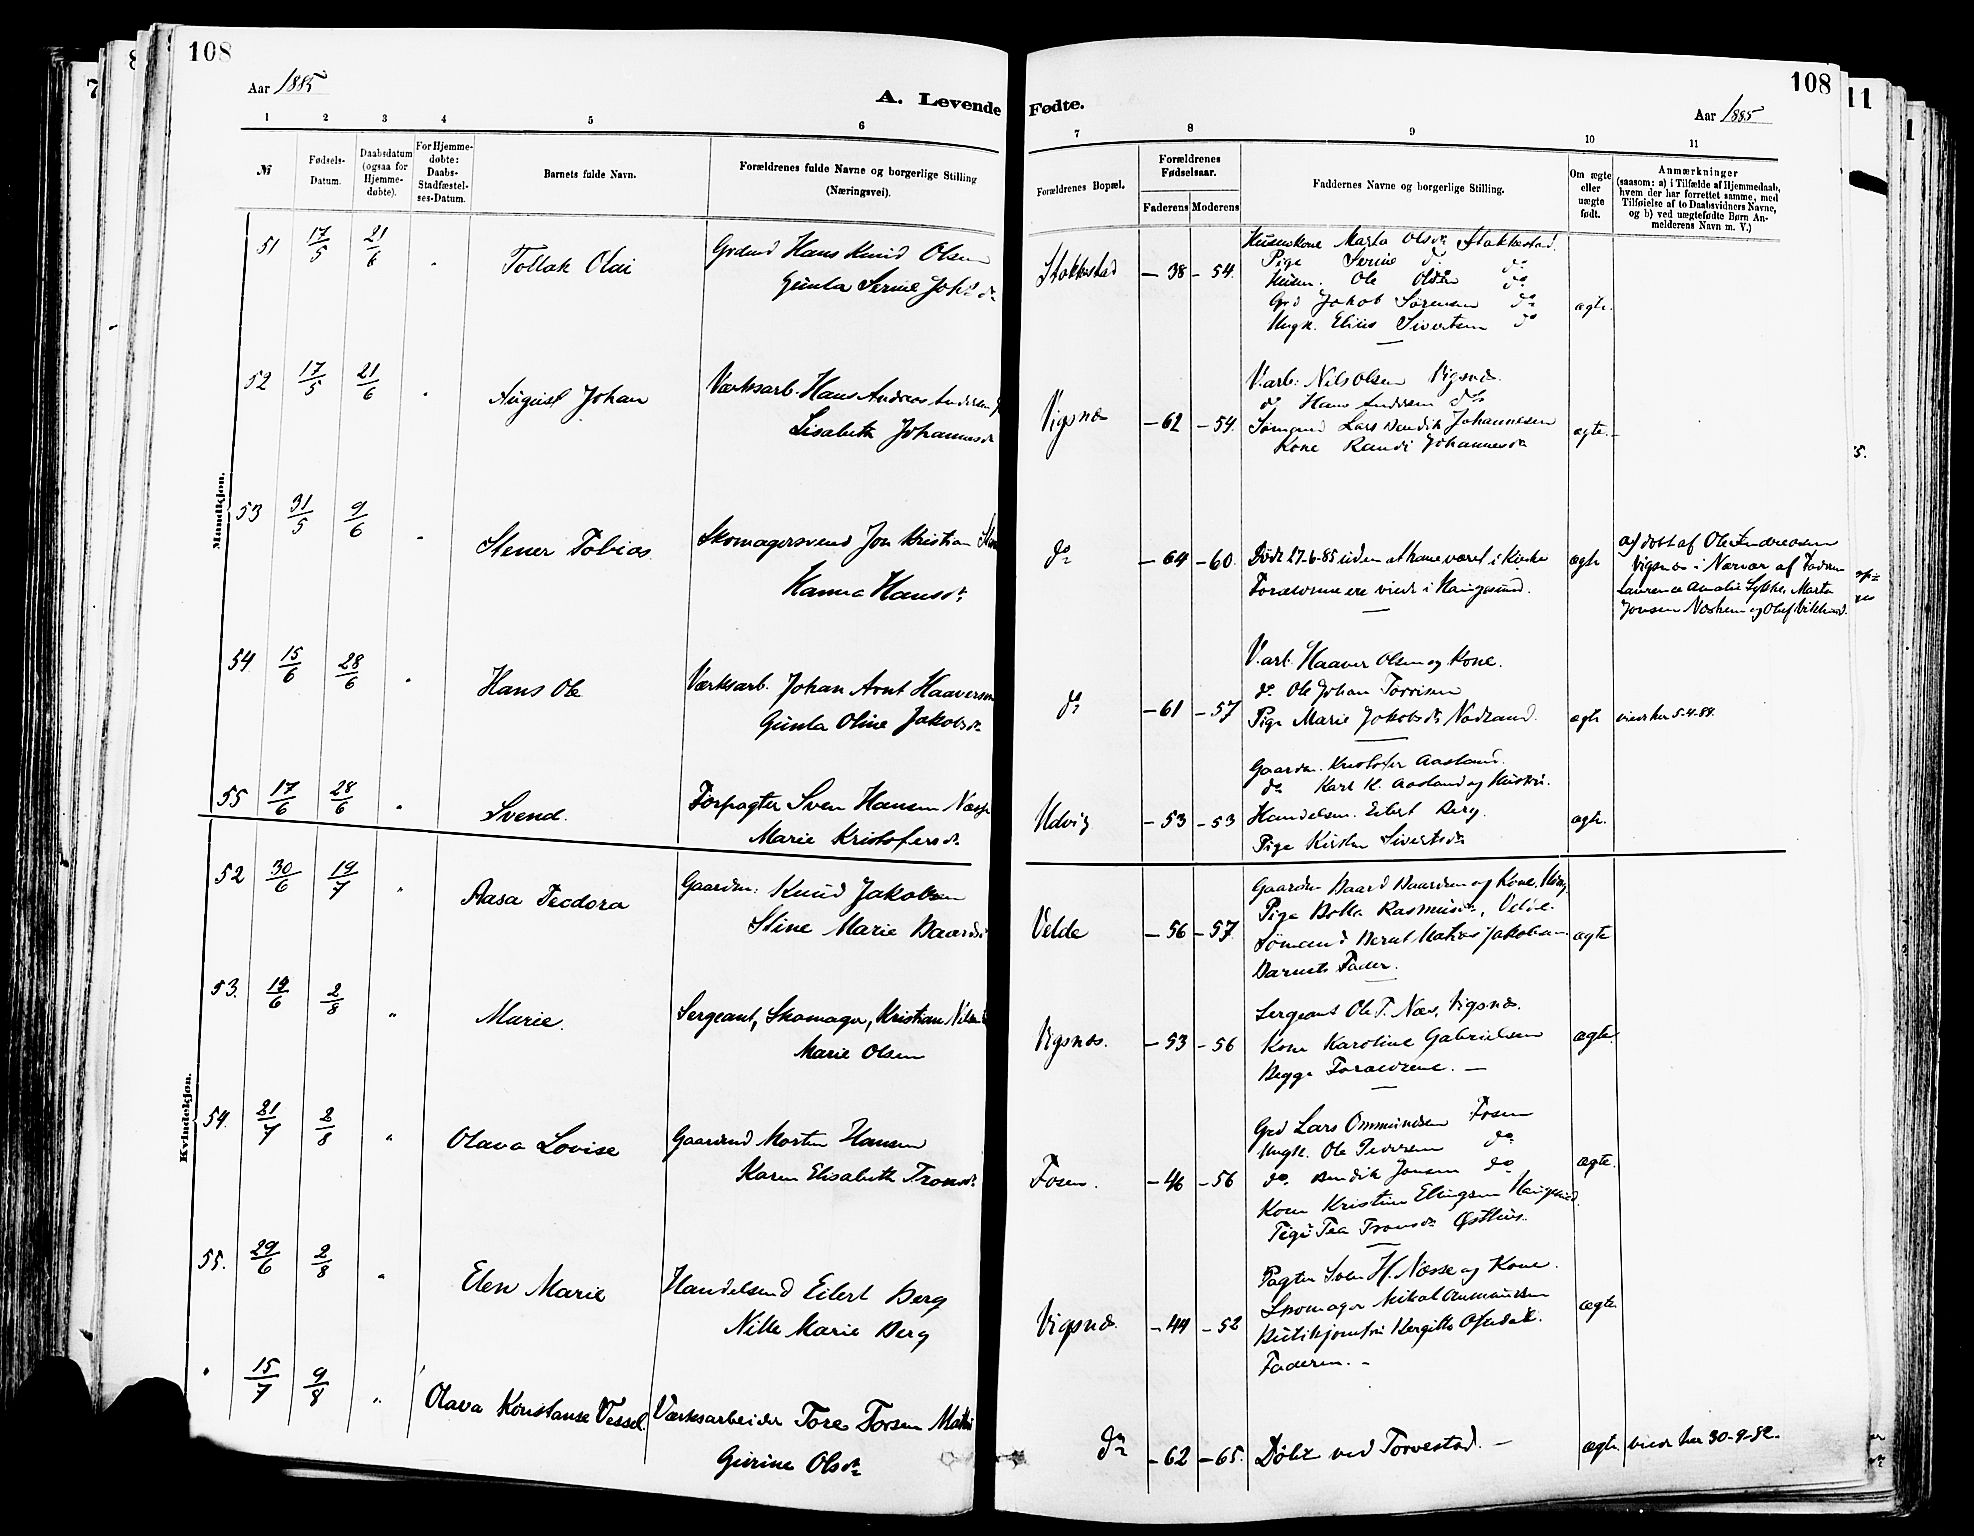 108
Aar 1885
A. Levende
1 2 3 4 5 6
№
Fødsels-Datum.
Daabsdatum (ogsaa for Hjemme-døbte).
For Hjemme-døbte: Daabs-Stadfæstel-ses-Datum.
Barnets fulde Navn.
Forældrenes fulde Navne og borgerlige Stilling (Næringsvei).
Mandkjøn.
51 17/5 21/6 " Tollak Olai Grdmd Hans Knud Olsen
Gunla Serine Joh.sdr
52 17/5 21/6 " August Johan Værksarb. Hans Andreas Andersen
Lisabeth Johannesdr
53 31/5 9/6 " Stener Tobias Skomagersvend Jon Kristian
Hanna Hansdr
54 15/6 28/6 " Hans Ole Værksarb. Johan Arnt Haaversen
Gunla Oline Jakobsdr
55 17/6 28/6 " Svend. Forpagter Sven Hansen Næsse
Marie Kristofersdr
Kvindekjøn.
52 30/6 19/7 " Aasa Teodora Gaardm: Knud Jakobsen
Stine Marie Baards
53. 19/6 2/8 " Marie. Sergeant, Skomager, Kristian Nilsen
Marie Olsen
54. 21/7 2/8 " Olava Lovise Gaardmd Morten Hansen
Karen Elisabeth Tronsdr
55. 29/6 2/8 " Elen Marie Handelsmd Eilert Berg
Nille Marie Berg
" 15/7 9/8 " Olava Konstanse Tessel. Værksarbeider Tore Torsen
Gurine Olsdr
108
Fødte.
Aar 1885
7 8 9 10 11
Forældrenes Bopæl.
Forældrenes Fødselsaar.
Faderens Moderens
Faddernes Navne og borgerlige Stilling.
Om ægte eller uægte født.
Anmærkninger
(saasom: a) i Tilfælde af Hjemmedaab, hvem der har forrettet samme, med Tilføielse af to Daabsvidners Navne, og b) ved uægtefødte Børn An-melderens Navn m. V.)
Husmkone Marta Olsdr Stakkestad.
Pige Serine do do
Stakkestad – 38 – 54. Husm. Ole Olsen do
Grd Jakob Sørensen do ægte.
Ungk. Elius Sivertsen do
V.arb: Nils Olsen Vigsnæs.
do Hans Andersen do
Vigsnæs – 62 – 54. Sømand Lars Bendik Johannesen ægte.
Kone Randi Johannesdr
do – 64 – 60. Død 27-6-85 uden at have været i Kirke ægte
Forældrene viede i Haugesund.
a) døbt af Ole Andreasen
Vigsnæs i Nærvær af Fadren
Laurence Amalie Lykke, Marta
Jonsen Næshem og Oluf
V.arb. Haaver Olsen og Kone.
do Ole Johan Torrisen
do – 61 – 57 Pige Marie Jakobsdr Nodland. ægte viede her 5-4-84.
Gaardm. Kristofer Aasland.
do Karl K. Aasland og Hustru.
Udvig – 53 – 53 Handelsm. Eilert Berg. ægte.
Pige Kirsten Sivertsdr
Gaardm Baard Baardsen og Kone,
Pige Bolla Rasmusdr, Velde.
Velde – 56 – 57. Sømand Bernt Matias Jakobsen ægte
Barnets Fader.
Sergeant Ole T. Næs, Vigsnæs.
Vigsnæs. – 53 – 56 Kone Karoline Gabrielsen ægte.
Begge Forældrene. –
Grd Lars Ommundsen Fosen
Ungk. Ole Pedersen do
Fosen. – 46 – 56 do. Bendik Jonsen do ægte.
Kone Kristine Elingsen Haugesund
Pige Tea Tronsdr Østhus.
Pagter Sven H. Næsse og Kone.
Vigsnæs. – 44 – 52 Skomager Mikal Ommundsen ægte
Butikjomfru Bergitte
Faderen. –
do – 62 – 65. Døbt ved Torvestad. – ægte. viede her 30-9-82.